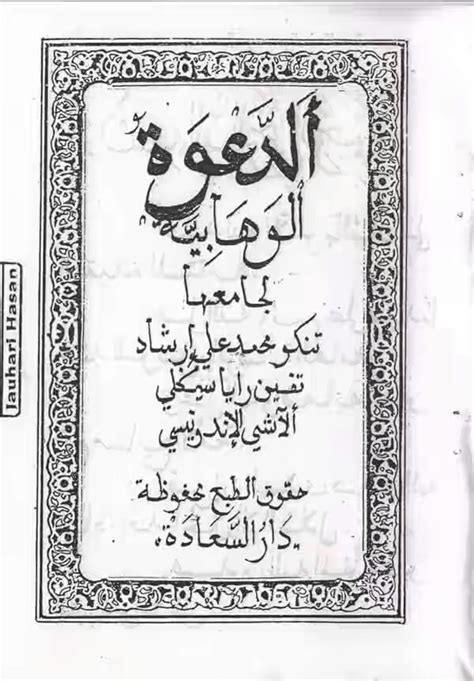 ألدَّعْوَة
الوهابيَّة
لجامعها
تنكو محمد علي إرشاد
تفين رايا سيڬلي
ألآشي الإندونيسي
حقوق الطبع محفوظة
دَارُ السَّعَادَة
Jauhari Hasan